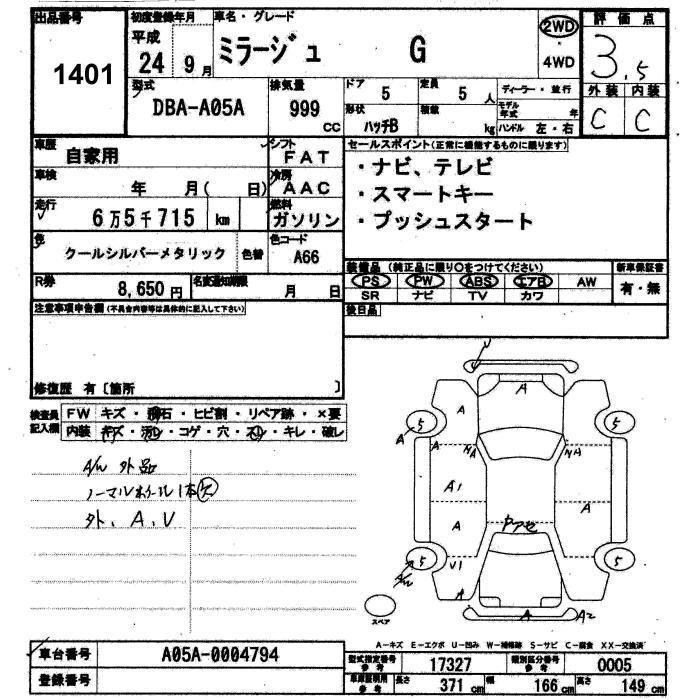 出品番号 1401
初度登録年月 平成 24 9月
車名・グレード ミラージュ G
2WD・4WD
評価点 3.5
外装 C 内装 C
型式 DBA-A05A
排気量 999 CC
ドア 5 定員 5人
形状 ハッチB 積載 kg
ディーラー・並行
モデル年式 年
ハンドル 左・右
車歴 自家用
シフト FAT
車検 年 月( 日)
冷房 AAC
走行 6万5千715 km
燃料 ガソリン
色 クールシルバーメタリック 色替
色コード A66
R券 8,650円
名変通知期限 月 日
セールスポイント(正常に機能するものに限ります)
・ナビ、テレビ
・スマートキー
・プッシュスタート
装備品 (純正品に限り○をつけてください)
PS PW ABS エアB AW
SR ナビ TV カワ
新車保証書 有・無
後日品
注意事項申告欄(不具合内容等は具体的に記入して下さい)
修復歴 有〔箇所 〕
検査員記入欄
FW キズ・飛石・ヒビ割・リペア跡・×要
内装 キズ・汚レ・コゲ・穴・スレ・キレ・破レ
A/W 外品
ノーマルホイール1本欠
外、A、V
V
A
A
5
5
A
A
MA
MA
A1
A
A
V1
5
5
A/W
A
A
A2
スペア
A-キズ E-エクボ U-凹み W-補修跡 S-サビ C-腐食 XX-交換済
車台番号 A05A-0004794
登録番号
型式指定番号参考 17327
類別区分番号参考 0005
車庫証明用参考 長さ 371cm 幅 166cm 高さ 149cm